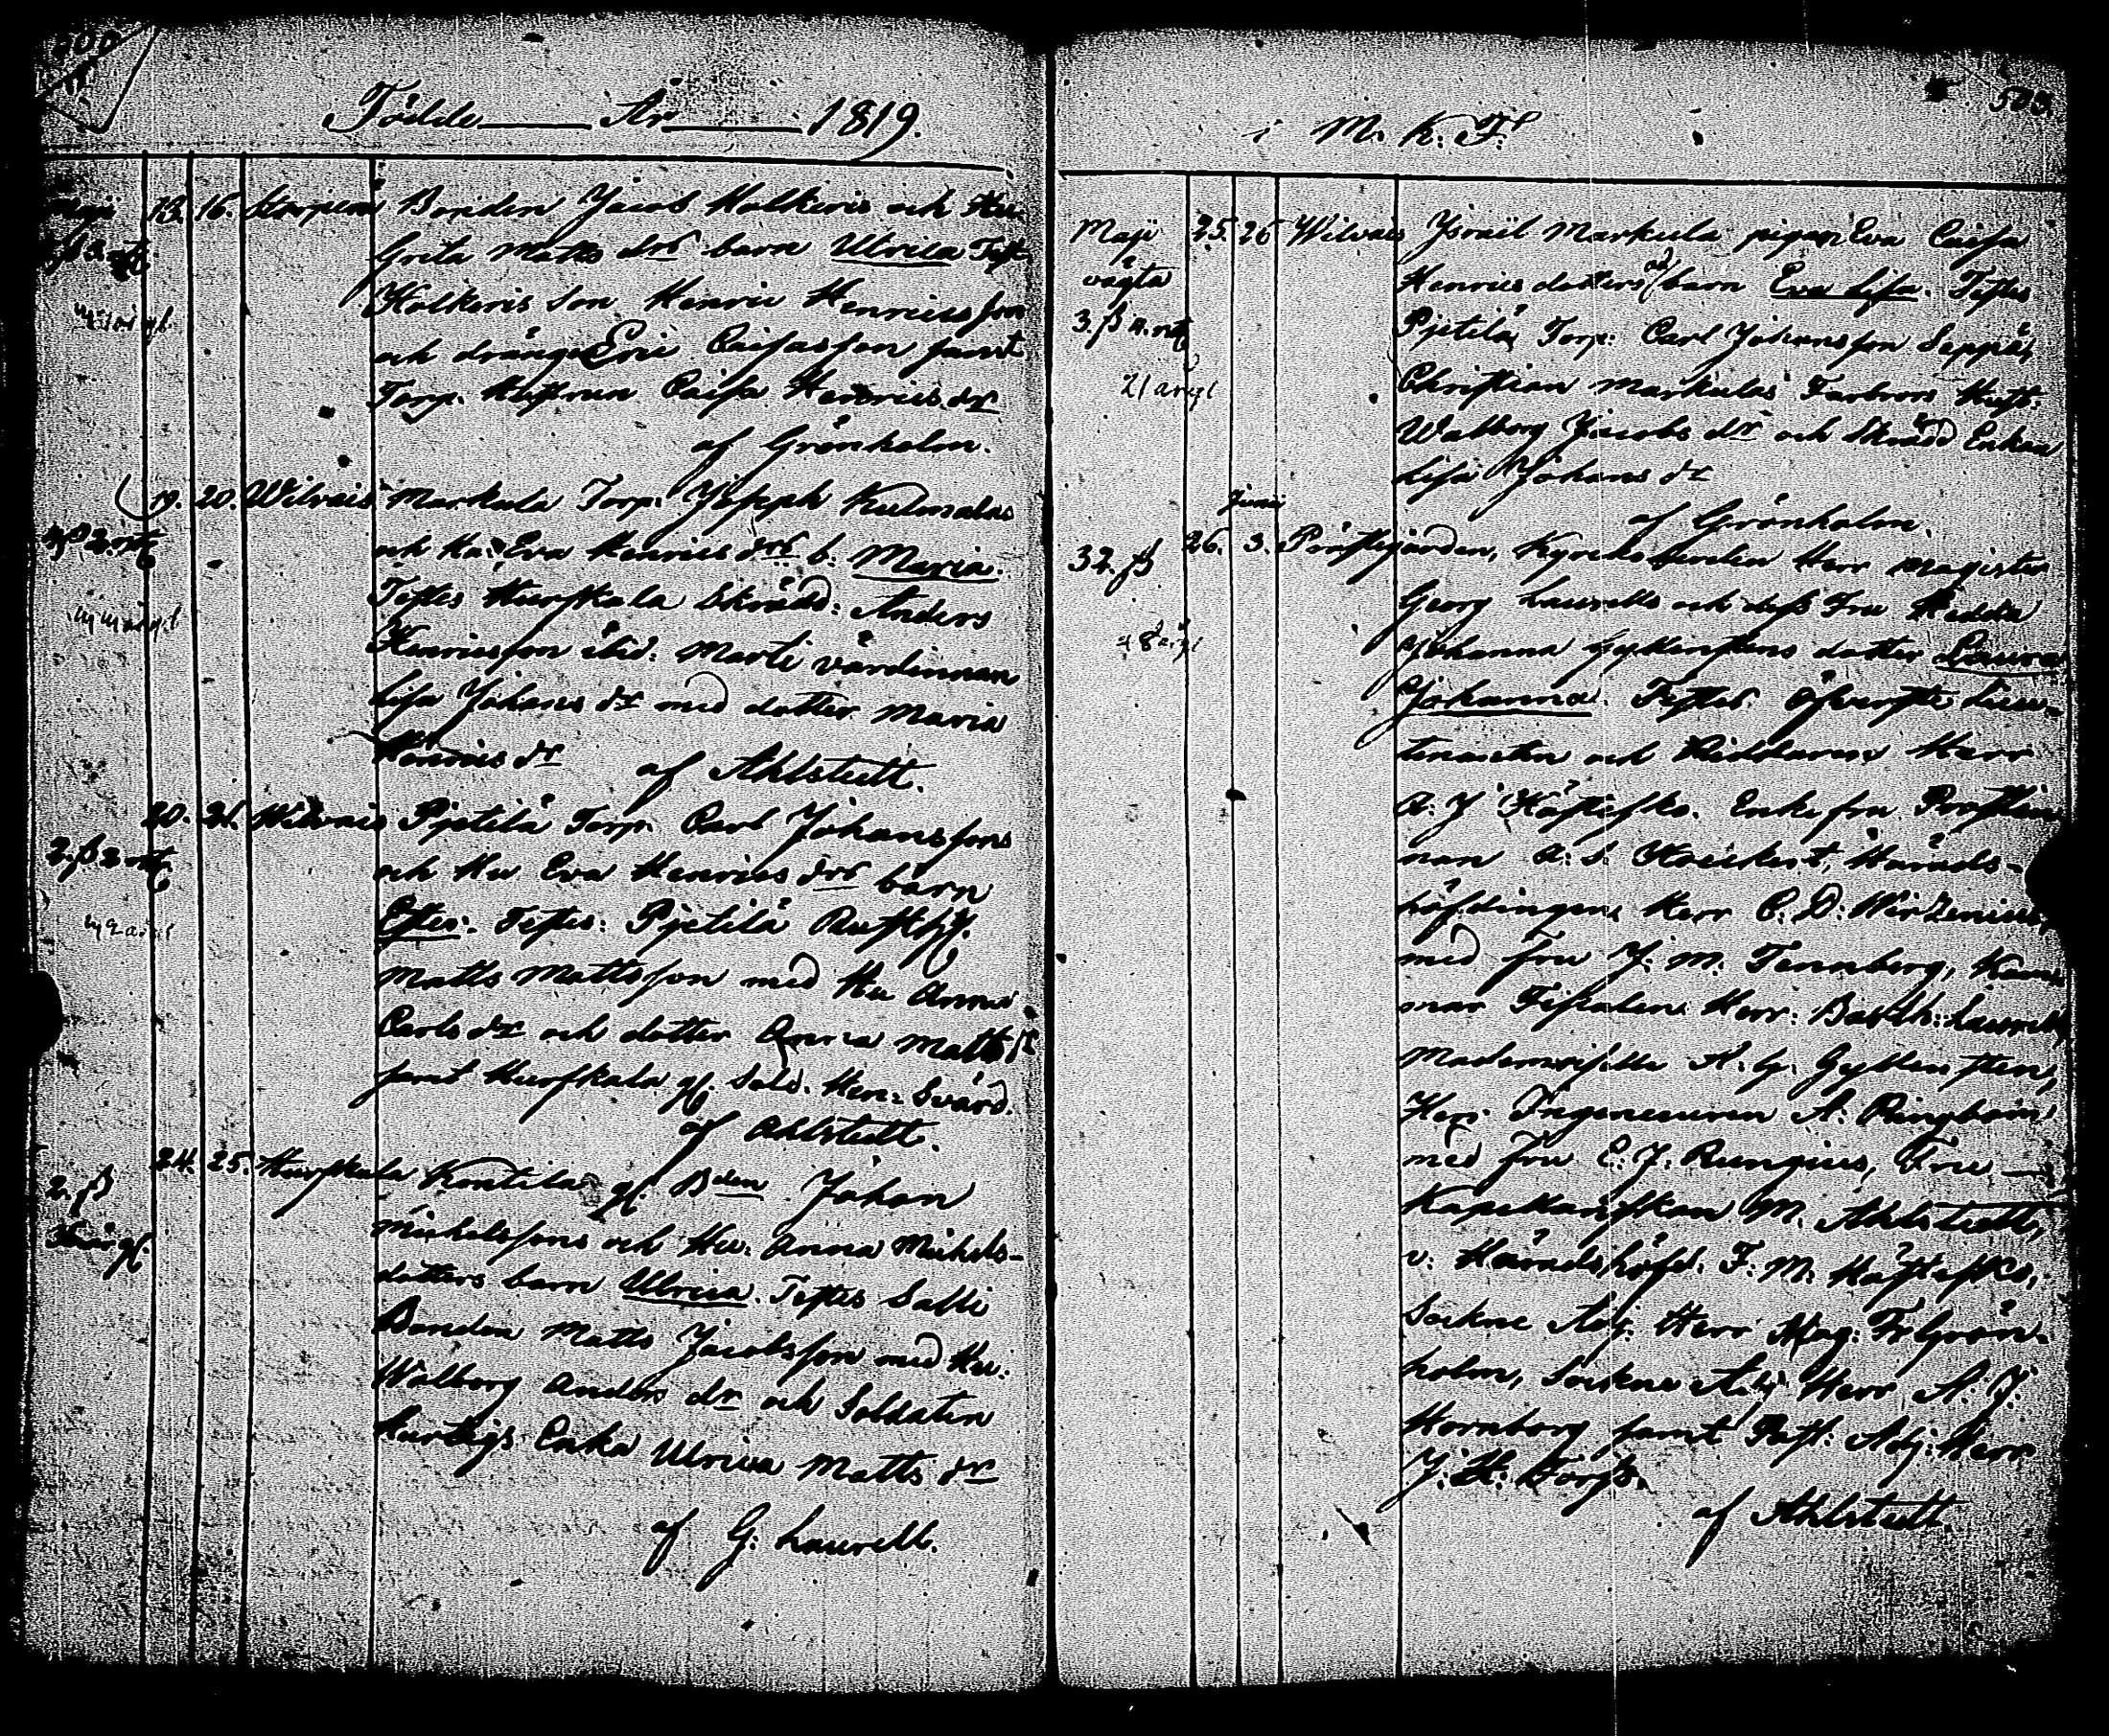 Födde År 1819.
Maji 13. 16. Bonden Jacob Holkeris och Hu.
Greta Matts drs barn Ulrica Test.
Holkeris Son Henric Henricsson
och drängen Eric Caisasson samt
Torp. Hustrun Caisa Henrics dr
af Grönholm.
19. 20. Wilvais Markula Torp. Joseph Kulmalas
och Hu. Eva Henrics drs b. Maria.
Testes Hurskala Skrädd: Anders
Henricsson ibid: Marti värdinnan
Lisa Johans dr med dotter Maria
Henrics dr af Ahlstedt.
20. 21. Wilvais Pjetilä Torp. Carl Johanssons
och Hu Eva Henrics drs barn
Testes: Pjetilä
Matts Mattsson med Hu Anna
Carls dr och dotter Anna Matts dr
samt Hurskala Sold. Hen: Svärd.
af Ahlstedt.
2. ß 24. 25. Hurskala Kontila Bden Johan
Michelssons och Hu. Anna Michels-
dotters barn Ulrica. Testes Salli
Bonden Matts Jacobsson med Hu.
Walborg Anders dr och Soldaten
Hurtigs Enka Ulrica Matts dr
af G: Laurell.
i M. K. F.
500.
Maji 25. 26 Wilvais Israël Markula pigan Eva Caisa
oägta Henrics dotters barn Eva Lisa. Testes
Pjetilä Torp: Carl Johansson Seppä,
Christian Markulas Farbrors Hust.
Walborg Jacobs dr och Skrädd Enkan
Lisa Johans dr
af Grönholm.
Junii
32. ß 26. 3. Prästegården, Kyrkoherden Herr Magister
Georg Laurells och dess Fru Hedda
Johanna Gyllenstens dotter Laura
Johanna. Testes: Öfverste Lieu-
tenanten och Riddaren Herr
A. J. Hästesko. Enkefru Prostin-
nan A. S. Häradts-
höfdingen Herr C. D: Wirzenius,
med fru J. M. Tennberg, Kam-
mar Fiskalen Herr: Barth: Laurell,
Mademoiselle A. G. Gyllensten,
Herr Ingenieuren A: Ringbom
med fru C. J. Rungius, Fru
Kapellanskan M. Ahlstedt,
v. Häradshöfd. F. M. Hästesko,
Sockne Adj. Herr Mag: Fr Grön-
holm, Sockne Adj Herr A. J.
Hornborg samt Past. Adj: Herr
J. H: Forss.
af Ahlstedt.